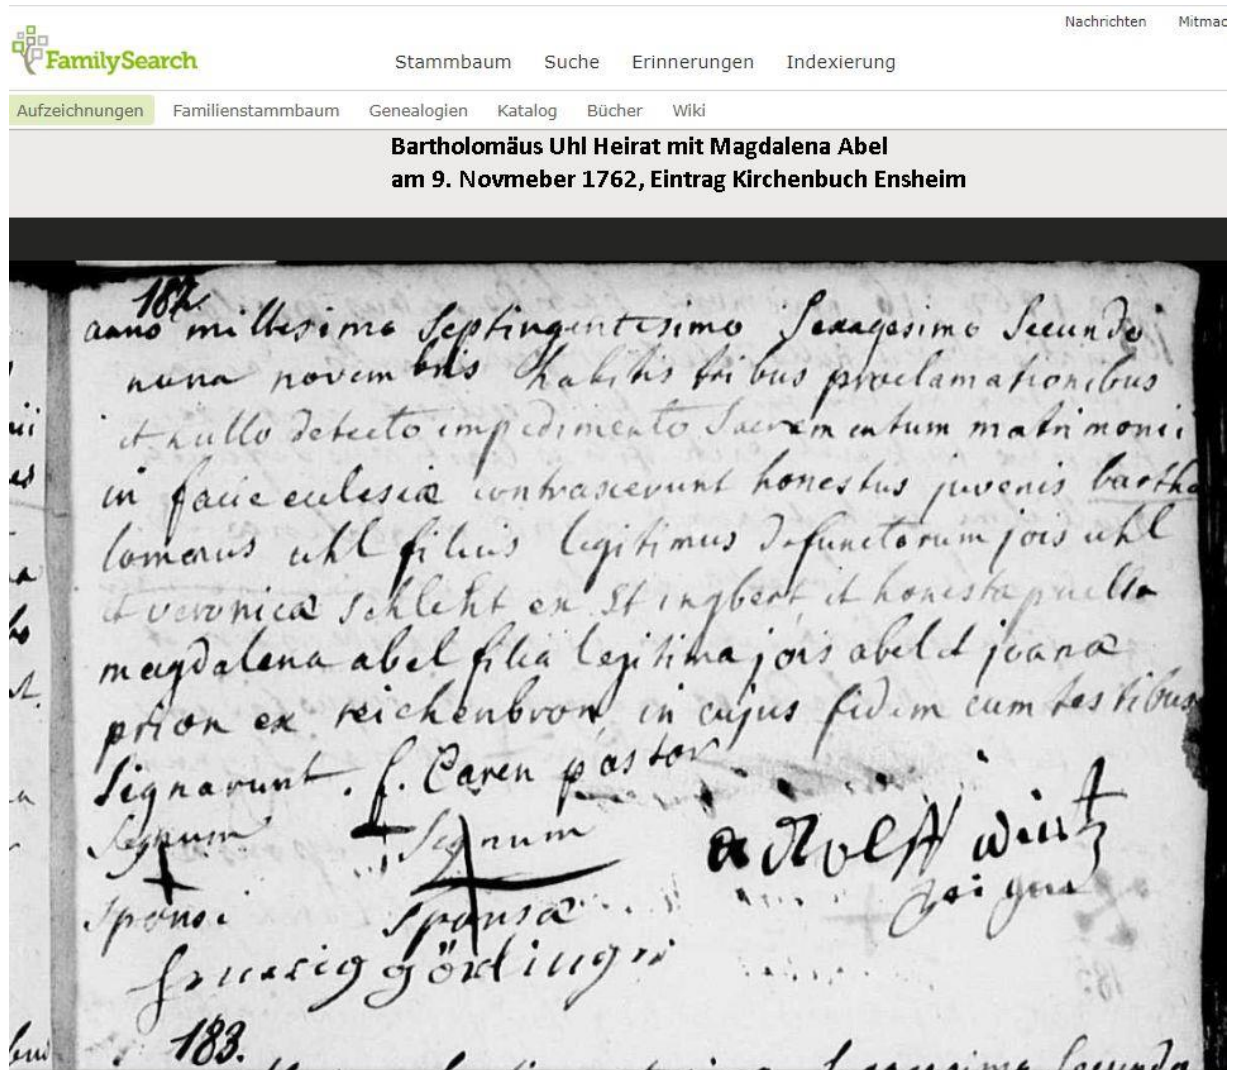 Nachrichten Mitmac
FamilySearch
Stammbaum Suche Erinnerungen Indexierung
Aufzeichnungen Familienstammbaum Genealogien Katalog Bücher Wiki
Bartholomäus Uhl Heirat mit Magdalena Abel
am 9. Novmeber 1762, Eintrag Kirchenbuch Ensheim
182.
anno millesimo Septingentesimo Sexagesimo Secundo
nona novembris habitis tribus proclamationibus
et nullo detecto impedimento Sacramentum matrimonii
in facie eclesiæ contraxerunt honestus juvenis bartho
lomæus uhl filius legitimus defunctorum jois uhl
et veronicæ schleht ex St ingbert, et honesta puella
magdalena abel filia legitima jois abel et joanæ
prion ex reichenbron, in cujus fidem cum testibus
Signarunt. f. Caren pastor
Signum Signum adolff
Sponsi Sponsæ
gördinger
183.
Secundo